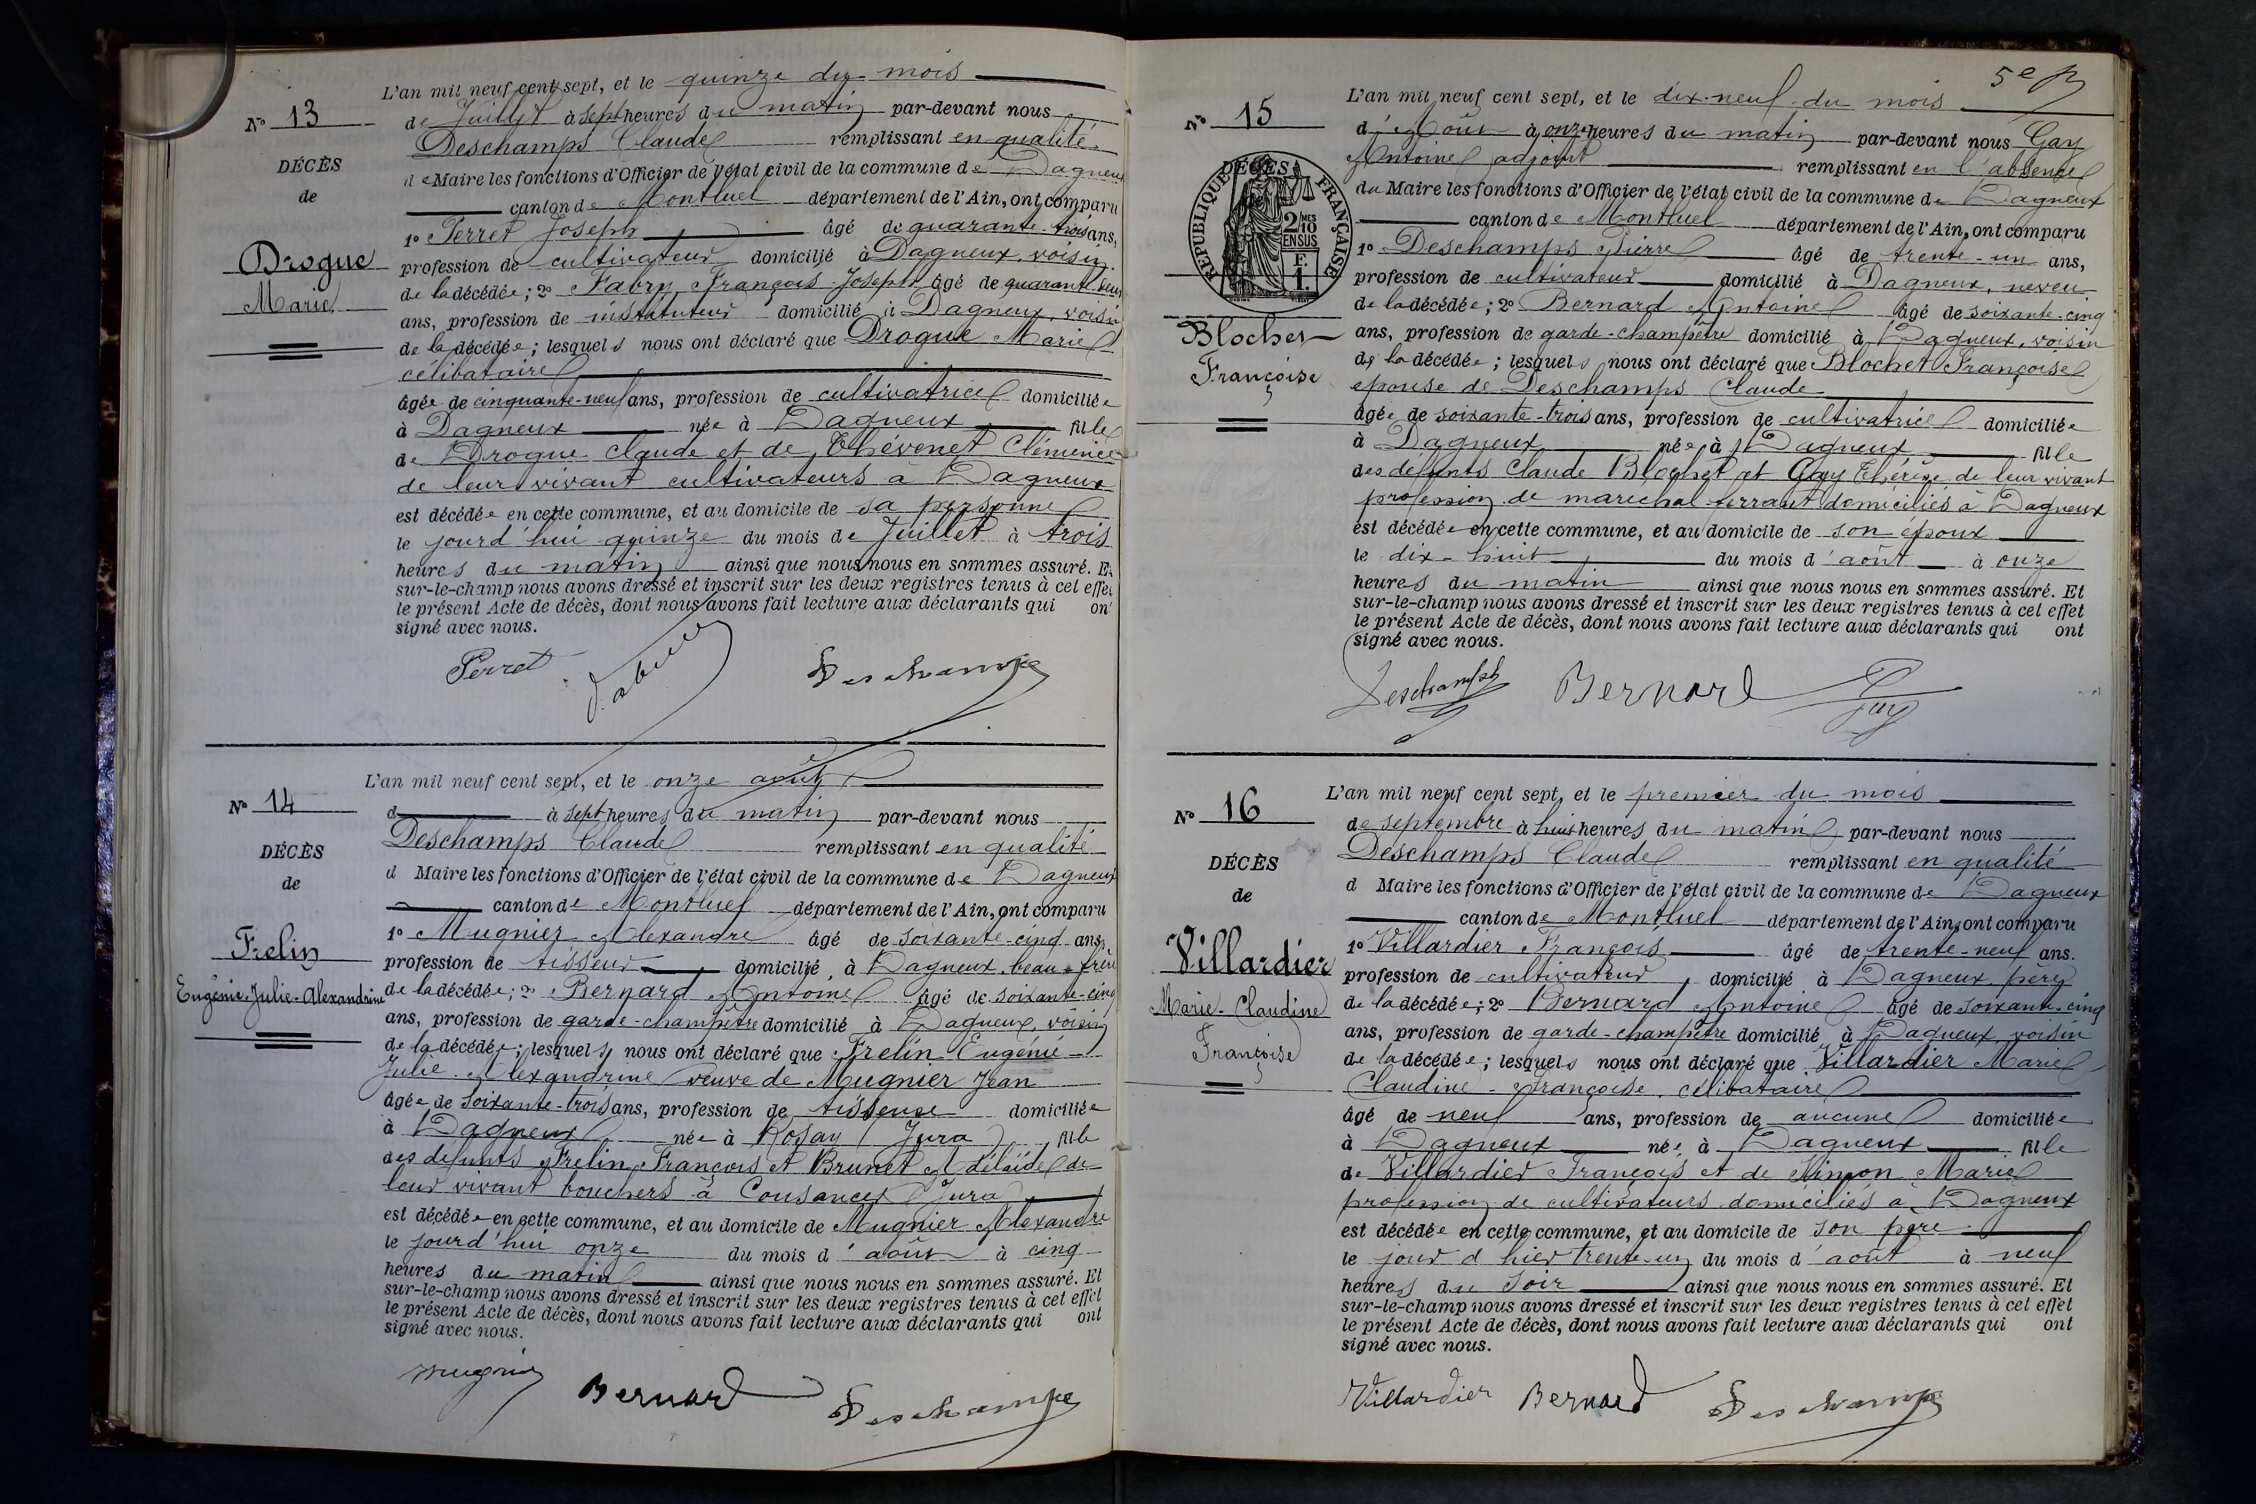 N° 13
DÉCÈS
de
Drogue
Marie
L'an mil neuf cent sept, et le quinze du mois
de Juillet à sept heures du matin par-devant nous
Deschamps Claude remplissant en qualité
de Maire les fonctions d'Officier de l'état civil de la commune de Dagneux
canton de Montluel département de l'Ain, ont comparu
1° Perret Joseph âgé de quarante-trois ans,
profession de cultivateur domicilié à Dagneux, voisin
de la décédée; 2° Fabry François-Joseph âgé de quarante-deux
ans, profession de instituteur domicilié à Dagneux, voisin
de la décédée; lesquels nous ont déclaré que Drogue Marie
célibataire
âgée de cinquante-neuf ans, profession de cultivatrice domiciliée
à Dagneux née à Dagneux fille
de Drogue Claude et de Thévenet Clémence
de leur vivant cultivateurs à Dagneux
est décédée en cette commune, et au domicile de sa personne
le jourd'hui quinze du mois de Juillet à trois
heures du matin ainsi que nous nous en sommes assuré. Et
sur-le-champ nous avons dressé et inscrit sur les deux registres tenus à cet effet
le présent Acte de décès, dont nous avons fait lecture aux déclarants qui ont
signé avec nous.
Perret Fabry Deschamps
N° 14
DÉCÈS
de
Frelin
Eugénie-Julie-Alexandrine
L'an mil neuf cent sept, et le onze août
d à sept heures du matin par-devant nous
Deschamps Claude remplissant en qualité
d Maire les fonctions d'Officier de l'état civil de la commune de Dagneux
canton de Montluel département de l'Ain, ont comparu
1° Mugnier Alexandre âgé de soixante-cinq ans,
profession de tisseur domicilié à Dagneux, beau-frère
de la décédée; 2° Bernard Antoine âgé de soixante-cinq
ans, profession de garde-champêtre domicilié à Dagneux, voisin
de la décédée; lesquels nous ont déclaré que Frelin Eugénie
Julie-Alexandrine veuve de Mugnier Jean
âgée de soixante-trois ans, profession de tisseuse domiciliée
à Dagneux née à Rosay (Jura) fille
des défunts Frelin François et Brunet Adélaïde de
leur vivant bouchers à Cousance (Jura)
est décédée en cette commune, et au domicile de Mugnier Alexandre
le jourd'hui onze du mois d'août à cinq
heures du matin ainsi que nous nous en sommes assuré. Et
sur-le-champ nous avons dressé et inscrit sur les deux registres tenus à cet effet
le présent Acte de décès, dont nous avons fait lecture aux déclarants qui ont
signé avec nous.
Mugnier Bernard Deschamps
5e
N° 15
DÉCÈS
RÉPUBLIQUE FRANÇAISE
2/10 MES
EN SUS
F.
1.
Blochet
Françoise
L'an mil neuf cent sept, et le dix-neuf du mois
d'Août à onze heures du matin par-devant nous Gay
Antoine adjoint remplissant en l'absence
du Maire les fonctions d'Officier de l'état civil de la commune de Dagneux
canton de Montluel département de l'Ain, ont comparu
1° Deschamps Pierre âgé de trente-un ans,
profession de cultivateur domicilié à Dagneux, neveu
de la décédée; 2° Bernard Antoine âgé de soixante-cinq
ans, profession de garde-champêtre domicilié à Dagneux, voisin
de la décédée; lesquels nous ont déclaré que Blochet Françoise
épouse de Deschamps Claude
âgée de soixante-trois ans, profession de cultivatrice domiciliée
à Dagneux née à Dagneux fille
des défunts Claude Blochet et Gay Thérèse de leur vivant
profession de maréchal-ferrant domiciliés à Dagneux
est décédée en cette commune, et au domicile de son époux
le dix-huit du mois d'août à onze
heures du matin ainsi que nous nous en sommes assuré. Et
sur-le-champ nous avons dressé et inscrit sur les deux registres tenus à cet effet
le présent Acte de décès, dont nous avons fait lecture aux déclarants qui ont
signé avec nous.
Deschamps Bernard Gay
N° 16
DÉCÈS
de
Villardier
Marie-Claudine
Françoise
L'an mil neuf cent sept, et le premier du mois
de septembre à huit heures du matin par-devant nous
Deschamps Claude remplissant en qualité
d Maire les fonctions d'Officier de l'état civil de la commune de Dagneux
canton de Montluel département de l'Ain, ont comparu
1° Villardier François âgé de trente-neuf ans.
profession de cultivateur domicilié à Dagneux, père
de la décédée; 2° Bernard Antoine âgé de soixante-cinq
ans, profession de garde-champêtre domicilié à Dagneux, voisin
de la décédée; lesquels nous ont déclaré que Villardier Marie
Claudine-Françoise, célibataire
âgé de neuf ans, profession de aucune domiciliée
à Dagneux née à Dagneux fille
de Villardier François et de Simon Marie
profession de cultivateurs domiciliés à Dagneux
est décédée en cette commune, et au domicile de son père
le jour d'hier trente-un du mois d'août à neuf
heures du soir ainsi que nous nous en sommes assuré. Et
sur-le-champ nous avons dressé et inscrit sur les deux registres tenus à cet effet
le présent Acte de décès, dont nous avons fait lecture aux déclarants qui ont
signé avec nous.
Villardier Bernard Deschamps